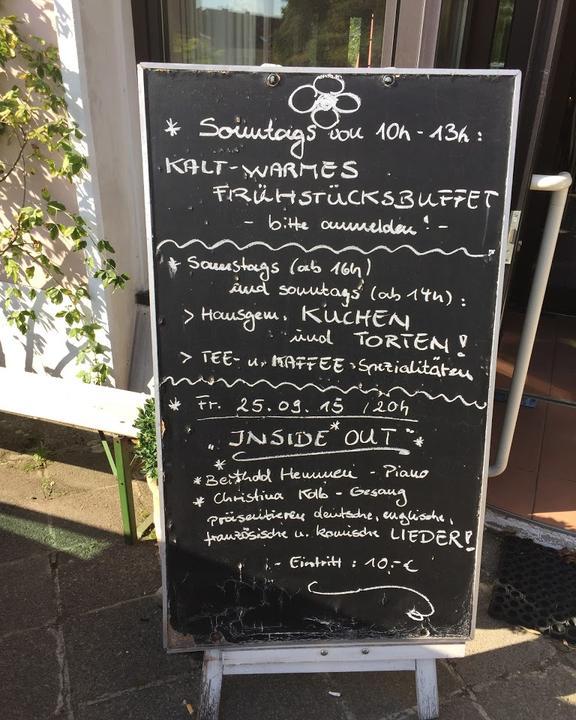 * Sonntags von 10h - 13h :
KALT-WARMES
FRÜHSTÜCKSBUFFET
- bitte anmelden! -
* Samstags (ab 16h)
und sonntags (ab 14h) :
> Hausgem. KUCHEN
und TORTEN!
> TEE- u. KAFFEE-Spezialitäten
* Fr. 25.09.15 / 20h
"INSIDE OUT"
* Berthold Hemmen - Piano
* Christina Kolb - Gesang
präsentieren deutsche, englische,
französische u. komische LIEDER!
- Eintritt : 10,-€